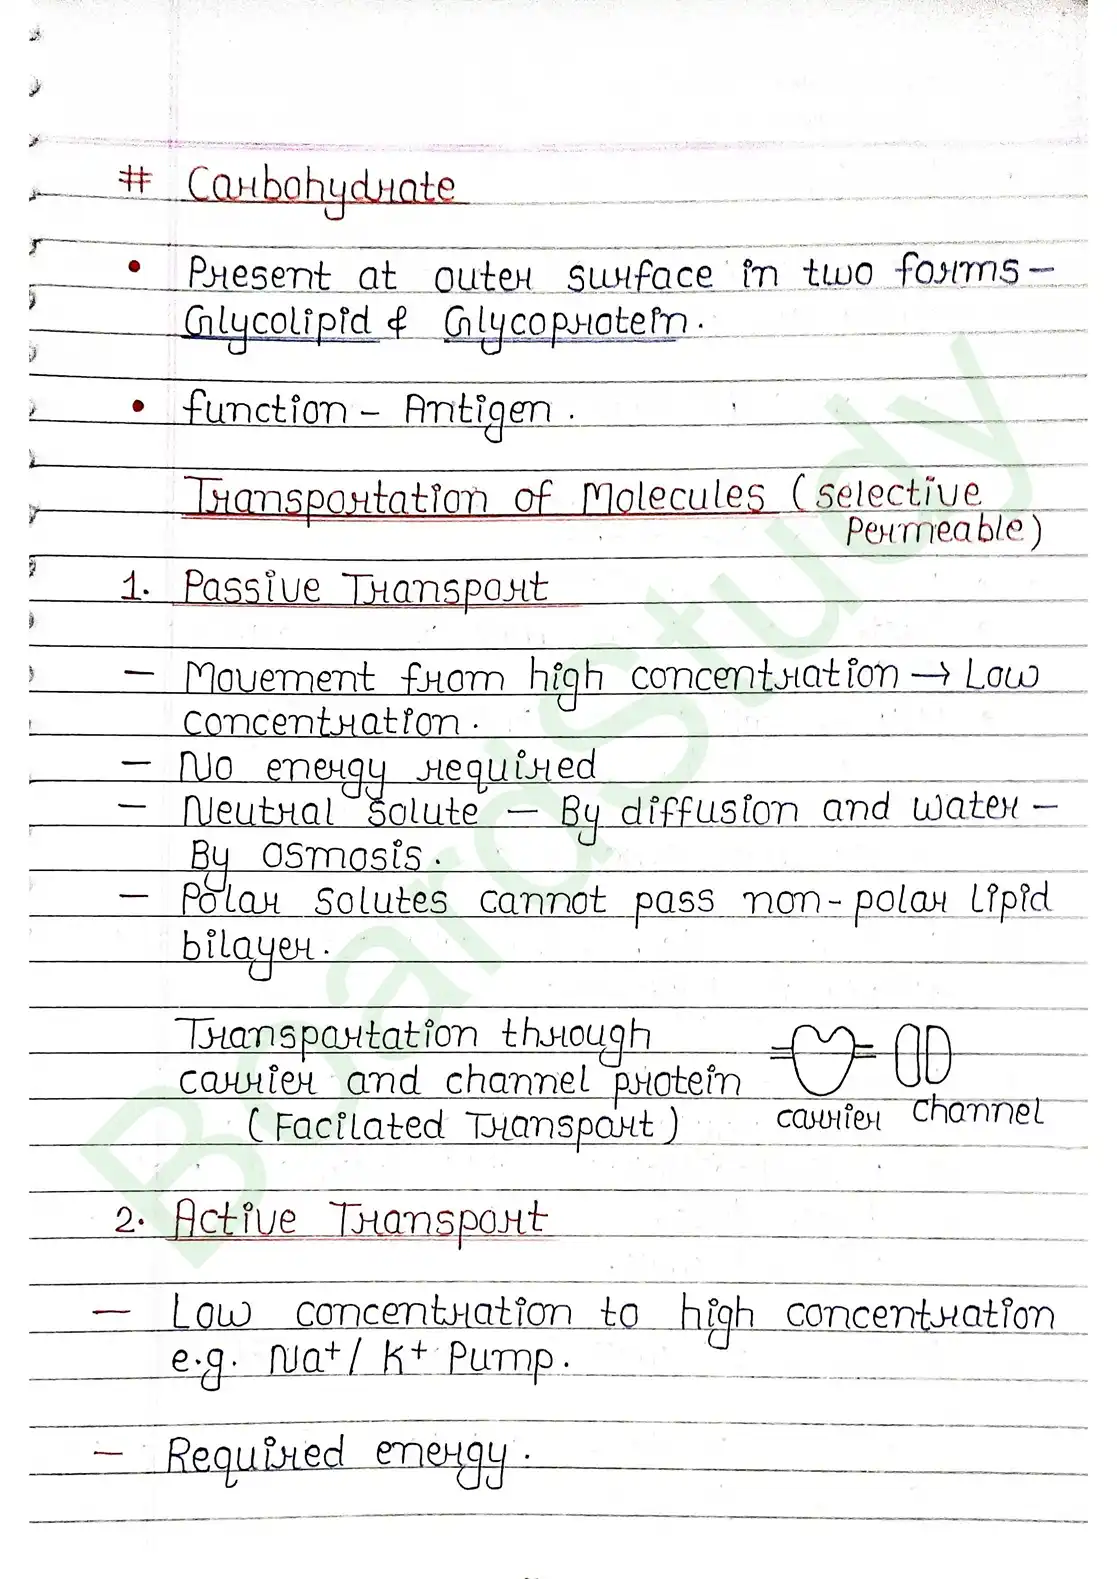 # Carbohydrate
• Present at outer surface in two forms –
Glycolipid & Glycoprotein.
• function – Antigen.
Transportation of Molecules (selective
Permeable)
1. Passive Transport
– Movement from high concentration → Low
concentration.
– No energy required
– Neutral solute – By diffusion and water –
By osmosis.
– Polar solutes cannot pass non-polar lipid
bilayer.
Transportation through
carrier and channel protein
(Facilated Transport)
carrier channel
2. Active Transport
– Low concentration to high concentration
e.g. Na+/ K+ Pump.
– Required energy.
BoardStudy